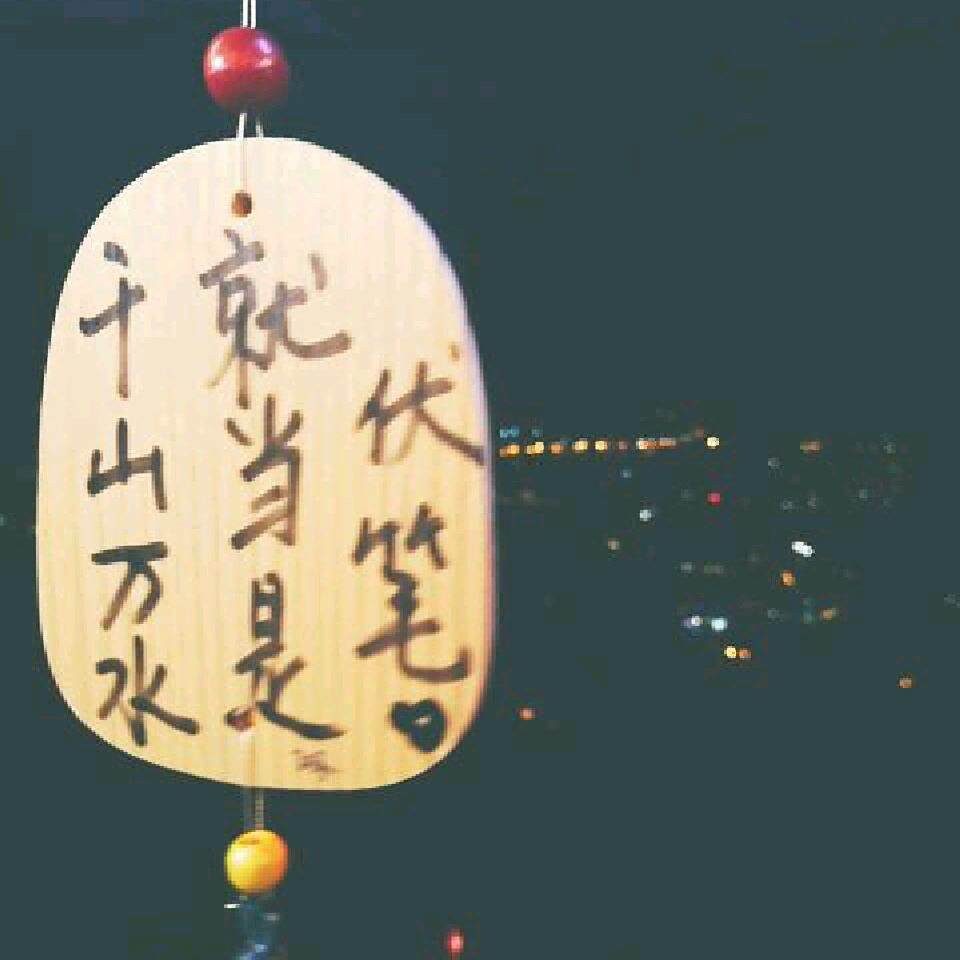 千山万水
就当是
伏笔。